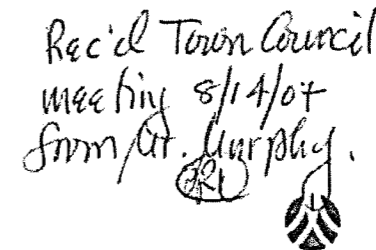 Rec'd Town Council
meeting 8/14/07
from Mr. Murphy.